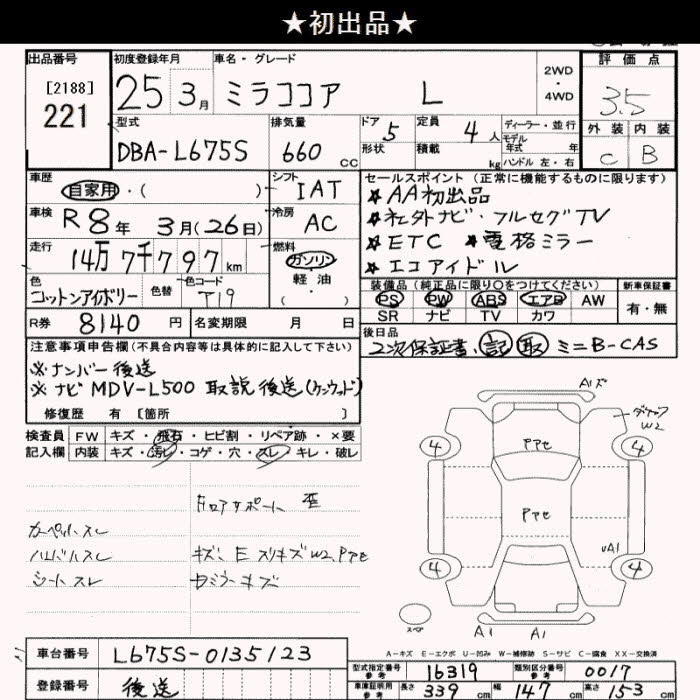 ★初出品★
出品番号
[2188]
221
初度登録年月
25 3月
車名・グレード
ミラココア L
2WD
・
4WD
評価点
3.5
外装 内装
C B
型式
DBA-L675S
排気量
660 CC
ドア 5
形状
定員 4人
積載 kg
ディーラー・並行
モデル
年式 年
ハンドル 左・右
車歴
自家用・( )
シフト
IAT
車検
R8年 3月(26日)
冷房
AC
走行
14万7千797km
燃料
ガソリン
軽油
( )
色
コットンアイボリー
色替
色コード
T19
R券 8140円
名変期限 月 日
セールスポイント(正常に機能するものに限ります)
★AA初出品
★社外ナビ・フルセグTV
★ETC ★電格ミラー
★エコアイドル
装備品(純正品に限り○をつけてください)
PS PW ABS エアB AW
SR ナビ TV カワ
新車保証書
有・無
後日品
2次保証書、記 取 ミニB-CAS
注意事項申告欄(不具合内容等は具体的に記入して下さい)
※ナンバー後送
※ナビMDV-L500 取説後送(ケンウッド)
修復歴 有 [箇所 ]
検査員
記入欄
FW キズ・飛石・ヒビ割・リペア跡・×要
内装 キズ・汚レ・コゲ・穴・スレ・キレ・破レ
フロアサポート 歪
シートスレ
W2
A1
4 4
4 4
uA1
A1 A1
スペア
A-キズ E-エクボ U-凹み W-補修跡 S-サビ C-腐食 XX-交換済
車台番号 L675S-0135123
登録番号 後送
型式指定番号
参考
16319
類別区分番号
参考
0017
車庫証明用
参考
長さ 339cm 幅 147cm 高さ 153cm